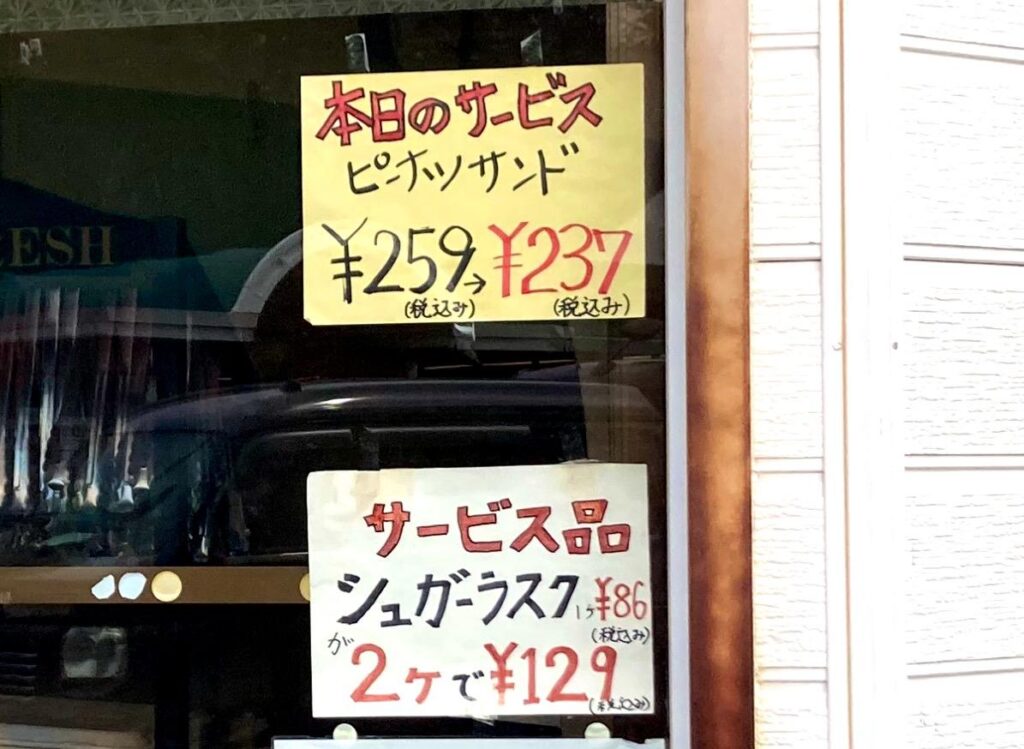 本日のサービス
ピーナツサンド
¥259→¥237
(税込み) (税込み)
サービス品
シュガーラスク 1ヶ¥86
(税込み)
が2ヶで¥129
(税込み)
ESH